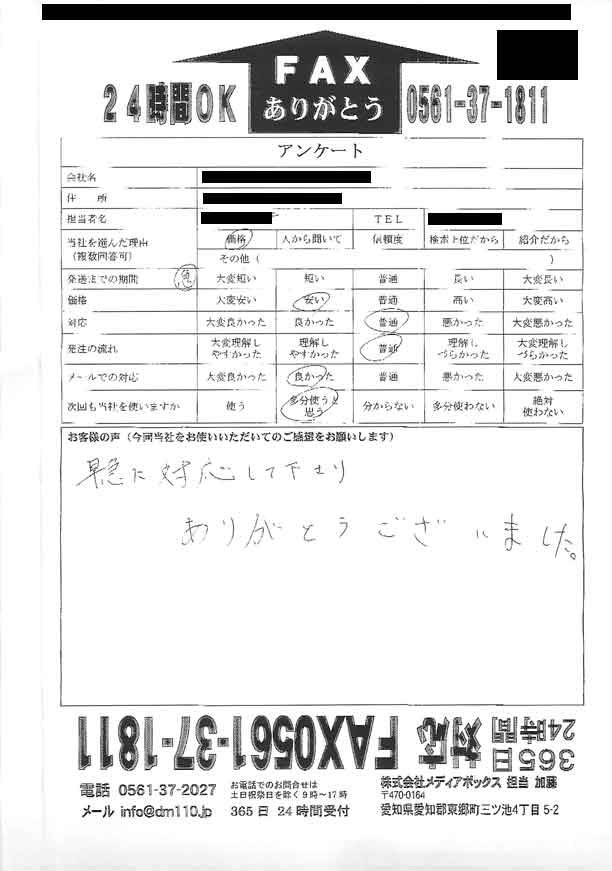 FAX
ありがとう
24時間OK
0561-37-1811
アンケート
会社名
住 所
担当者名 TEL
当社を選んだ理由(複数回答可) 価格 人から聞いて 信頼度 検索上位だから 紹介だから
その他( )
発送までの期間 急 大変短い 短い 普通 長い 大変長い
価格 大変安い 安い 普通 高い 大変高い
対応 大変良かった 良かった 普通 悪かった 大変悪かった
発注の流れ 大変理解しやすかった 理解しやすかった 普通 理解しづらかった 大変理解しづらかった
メールでの対応 大変良かった 良かった 普通 悪かった 大変悪かった
次回も当社を使いますか 使う 多分使うと思う 分からない 多分使わない 絶対使わない
お客様の声(今回当社をお使いいただいてのご感想をお願いします)
早急に対応して下さり
ありがとうございました。
365日24時間対応 FAX0561-37-1811
電話 0561-37-2027 お電話でのお問合せは土日祝祭日を除く9時〜17時 株式会社メディアボックス 担当 加藤
〒470-0164
メール info@dm110.jp 365日 24時間受付 愛知県愛知郡東郷町三ツ池4丁目5-2